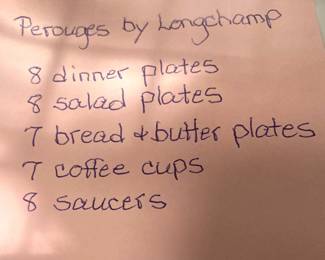 Perouges by Longchamp
8 dinner plates
8 salad plates
7 bread & butter plates
7 coffee cups
8 saucers